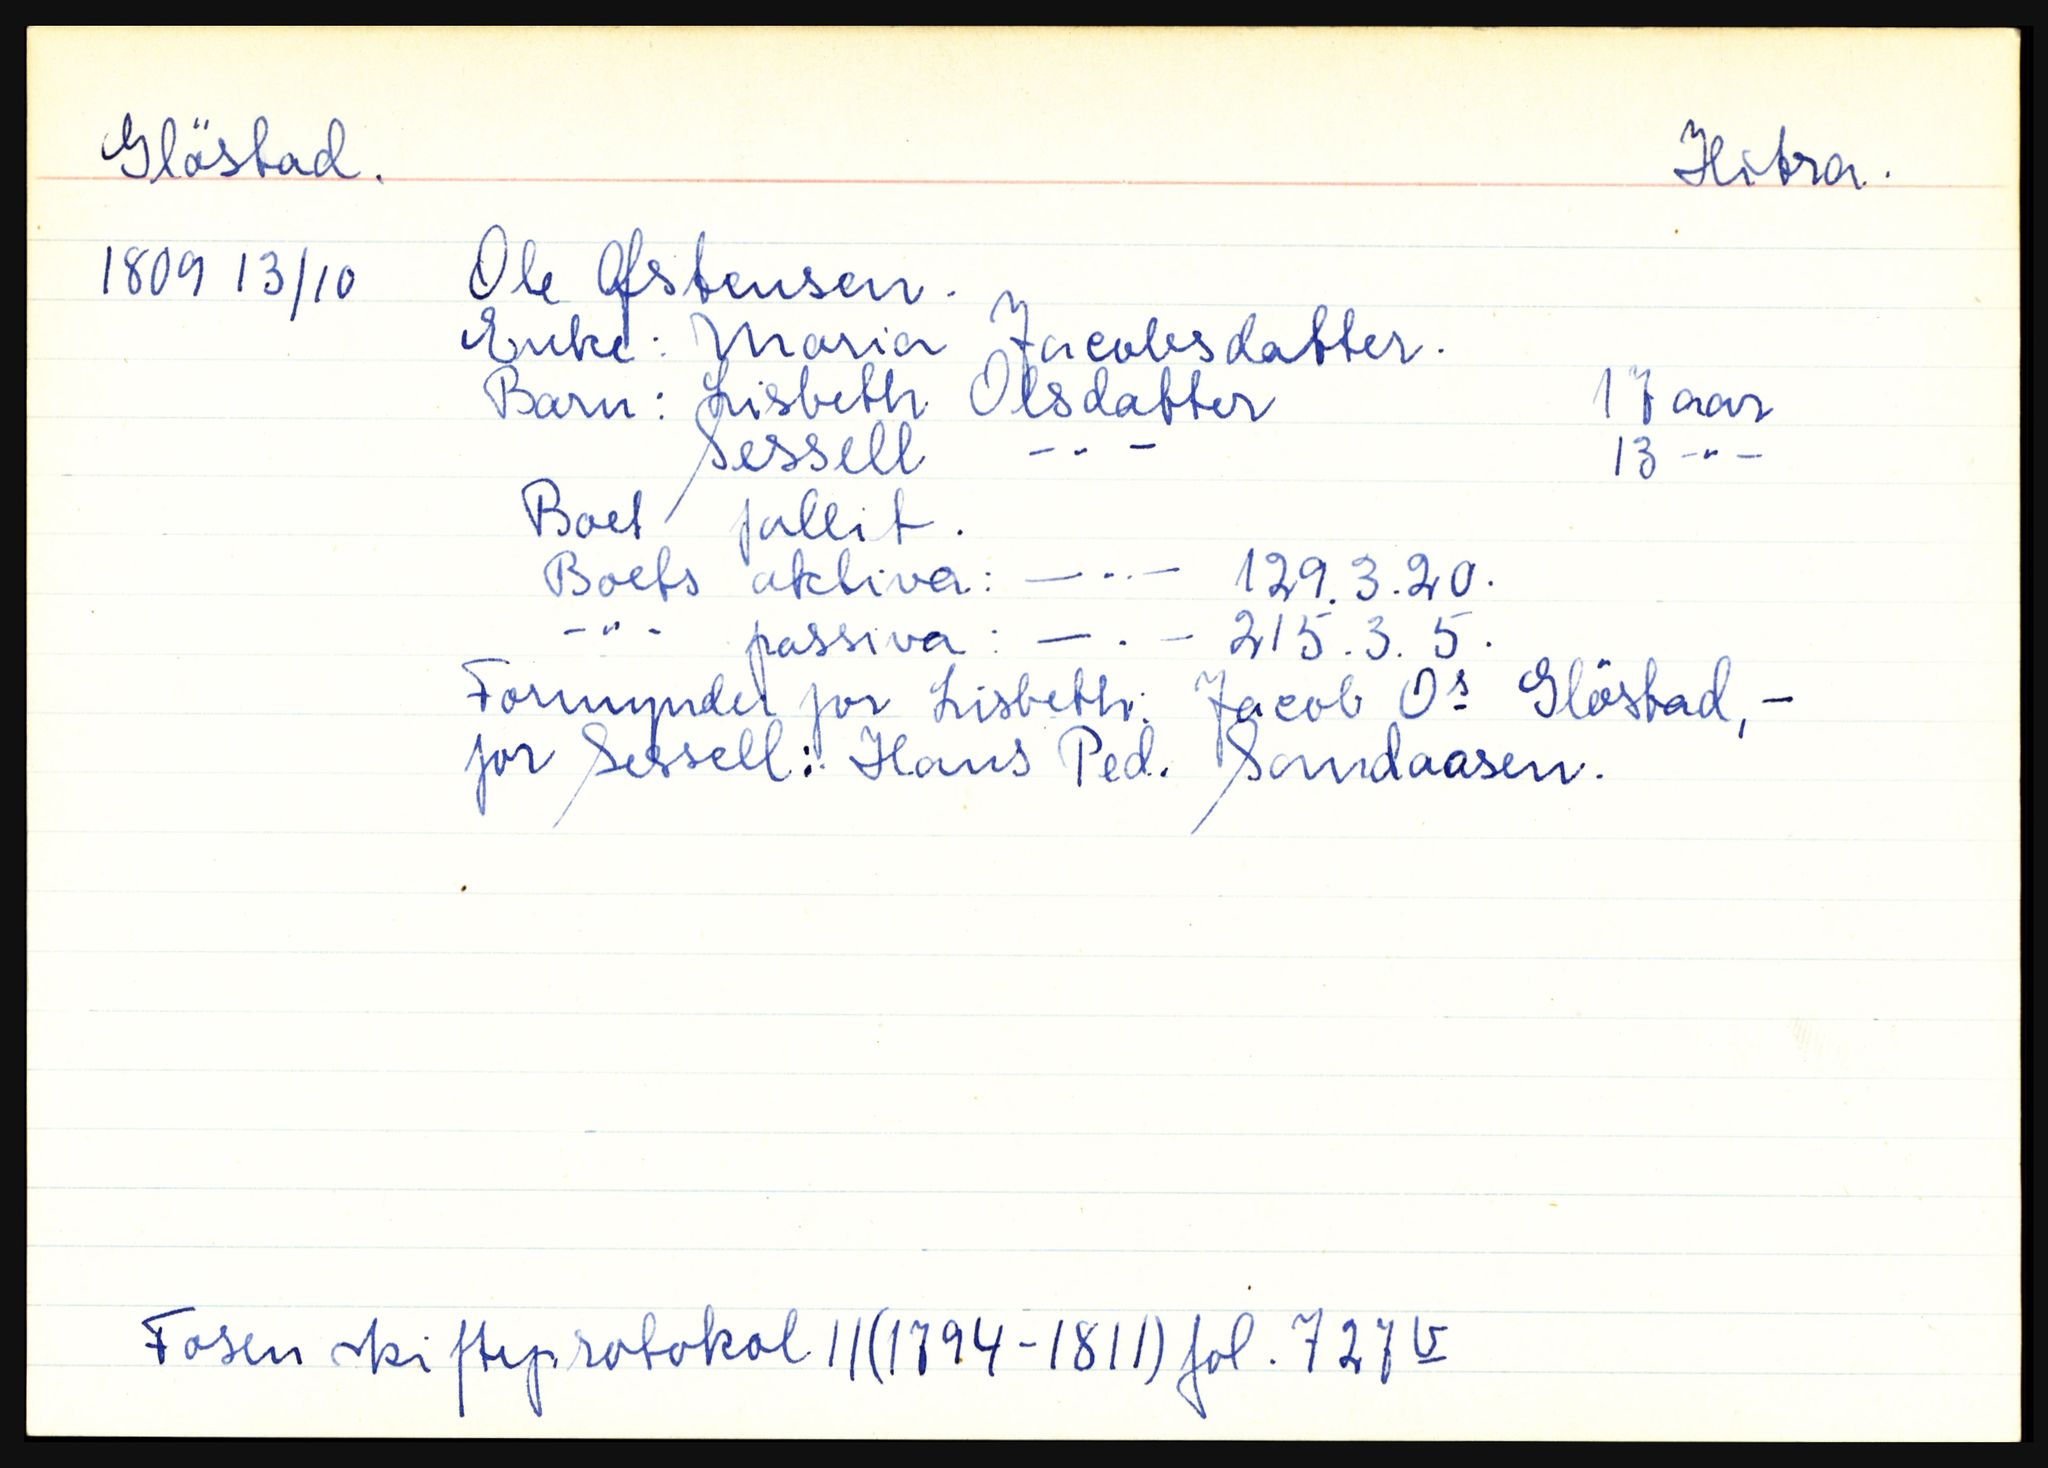 Glöstad. Hitra.
1809 13/10 Ole Ofstensen.
Enke: Maria Jacobsdatter.
Barn: Lisbeth Olsdatter 17 aar
Sessell -"- 13 -"-
Boet fallit.
Boets aktiva: — " — 129.3.20.
-"- passiva: — " — 215.3.5.
Formynder for Lisbeth: Jacob Os Glöstad, -
for Sessell: Hans Ped. Sandaasen.
Fosen skifteprotokol 11 (1794-1811) fol. 727v